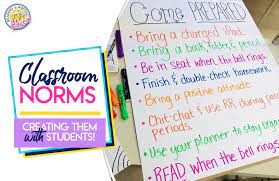 Classroom
NORMS
CREATING THEM
with STUDENTS!
Come PREPARED
• Bring a charged iPad.
• Bring a book, folder, & pencil.
• Be in seat when the bell rings.
• Finish & double-check homework.
• Bring a positive attitude.
• Chit-chat & use RR during
periods.
• Use your planner to stay
• READ when the bell rings.